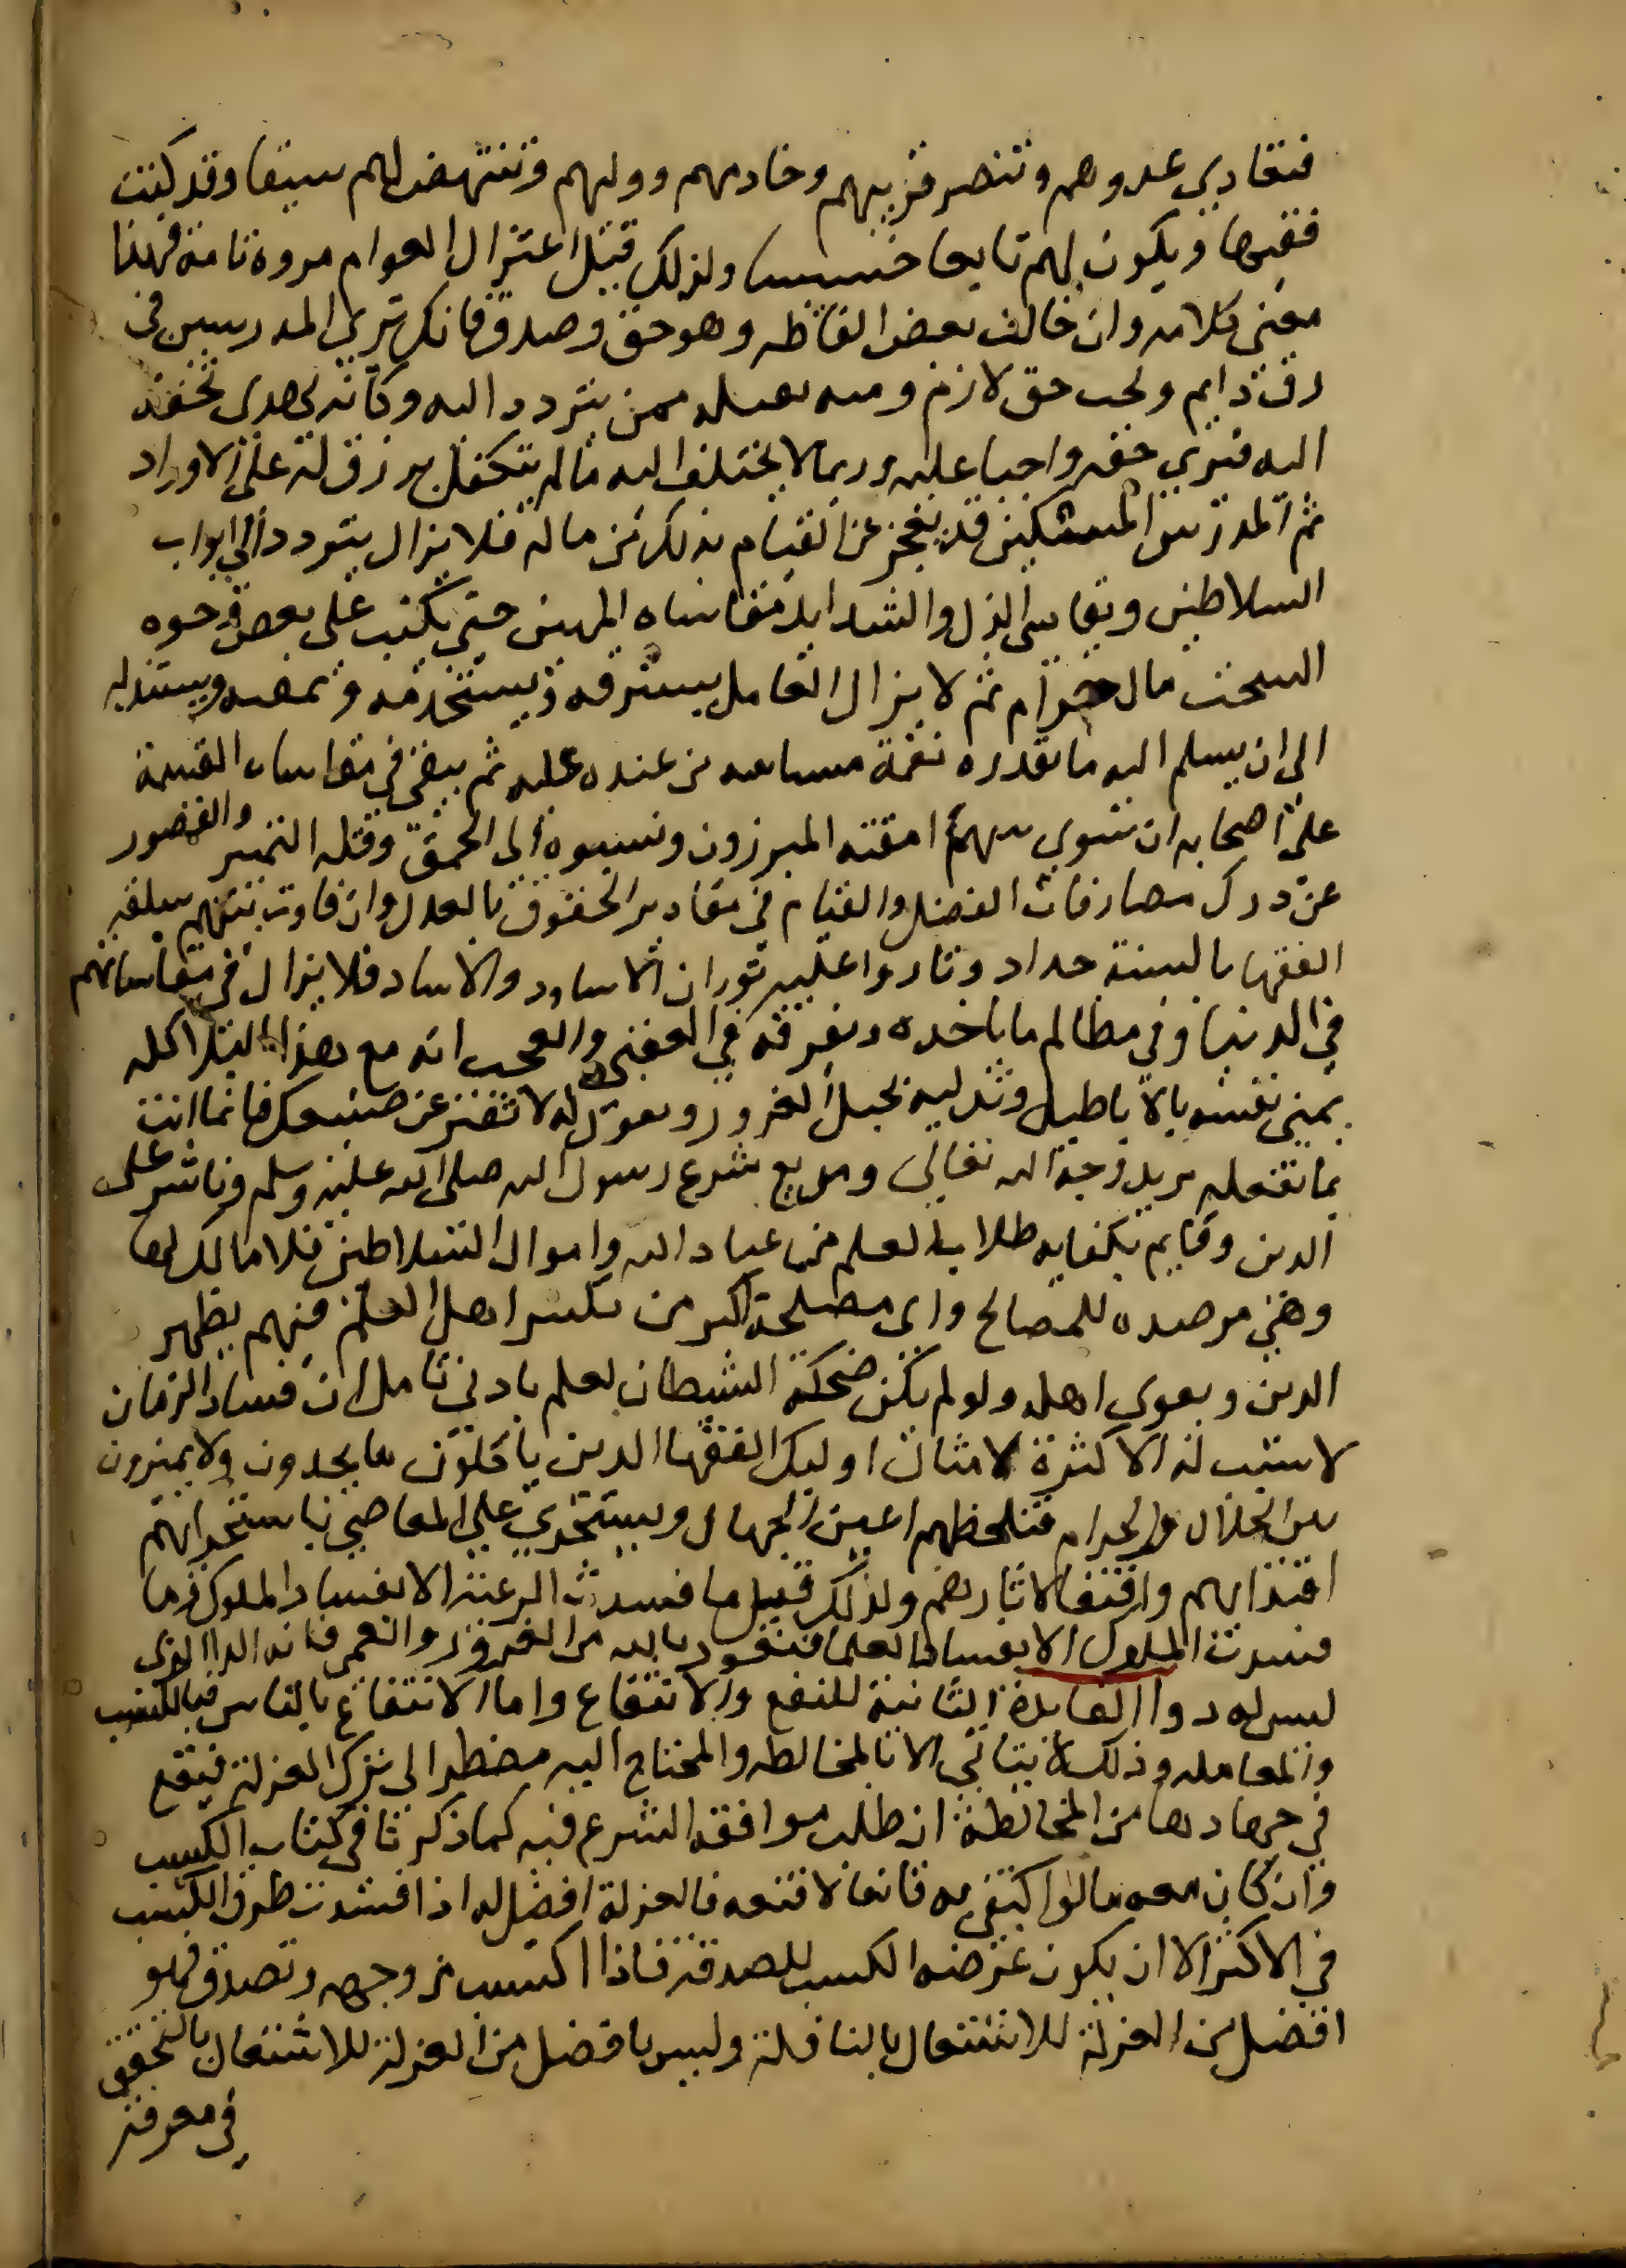 فتعادي عدوهم وتنصر قريبهم وخادمهم ووليهم وتنتهض لهم سيفا وقد كنت
فقيها ويكون لهم تابعا خسيسا ولذلك قيل اعتزال العوام مروة تامة فهذا
معني كلامه وان خالف بعض الفاظه وهو حق وصدق فانك تري المدرسين في
رق دايم وتحت حق لازم ومنه ثقيله ممن يتردد اليه وكانه يهدي تحفة
اليه فيري حقه واجبا عليه وربما لا يختلف اليه ما لم يتكفل برزق له علي الادرار
ثم المدرس المسكين قد يعجز عن القيام بذلك من ماله فلا يزال يتردد الي ابواب
السلاطين ويقاسي الذل والشدايد مقاساه المهين حتي يكتب علي بعض وجوه
السحت مال حرام ثم لا يزال العامل يسترقه ويستخدمه ويمهنه ويستذله
الي ان يسلم اليه ما يقدره نعمة مستانفه من عنده عليه ثم يبقي في مقاساه القسمة
علي اصحابه ان سوي بينهم امقته المبرزون ونسبوه الي الحمق وقله التميير والقصور
عن درك مصارفات الفضل والقيام في مقادير الحقوق بالعدل وان فاوت بينهم سلقه
الفقها بالسنة حداد وثاروا عليه ثوران الاساود والاساد فلا يزال في مقاساتهم
في الدنيا وفي مظالم ما ياخذه ويفرقه في العقبي والعجب انه مع هذا البلا كله
يمني نفسه بالاباطيل وتدليه بحبل الغرور ويقول له لا تفتر عن صنيعك فانما انت
بما تفعله مريد وجه الله تعالي ومذيع شرع رسول الله صلي الله عليه وسلم وناشر علم
الدين وقايم بكفايه طلاب العلم من عباد الله واموال السلاطين فلا مالك لها
وهي مرصده للمصالح واي مصلحة اكبر من تكثير اهل العلم فبهم يظهر
الدين ويقوي اهله ولو لم يكن ضحكة الشيطان لعلم بادني تامل ان فساد الزمان
لا سبب له الا كثرة الامثال اوليك الفقها الذين ياكلون ما يجدون ولا يميزون
بين الحلال والحرام فتلحظهم اعين الجهال ويستجري علي المعاصي باستجرائهم
اقتدا بهم واقتفا لاثارهم ولذلك قيل ما فسدت الرعية الا بفساد الملوك وما
فسدت الملوك الا بفساد العلما فنعوذ بالله من الغرور والعمي فانه الدا الذي
ليس له دوا الفايدة الثانية للنفع والانتفاع واما الانتفاع بالناس فبالكسب
والمعامله وذلك لا يتاتي الا بالمخالطه والمحتاج اليه مضطر الي ترك العزلة فيقع
في جهاد معا من المخالطة ان طلب موافقة الشرع فيه كما ذكرنا في كتاب الكسب
وان كان معه مال لو اكتفي به قانعا لاقنعه فالعزلة افضل له اذا انسدت طرق الكسب
في الاكثر الا ان يكون غرضه الكسب للصدقة فاذا اكتسب من وجهه وتصدق فهو
افضل من العزلة للاشتغال بالنافلة وليس بافضل من العزلة للاشتغال بالتحقق
في معرفة